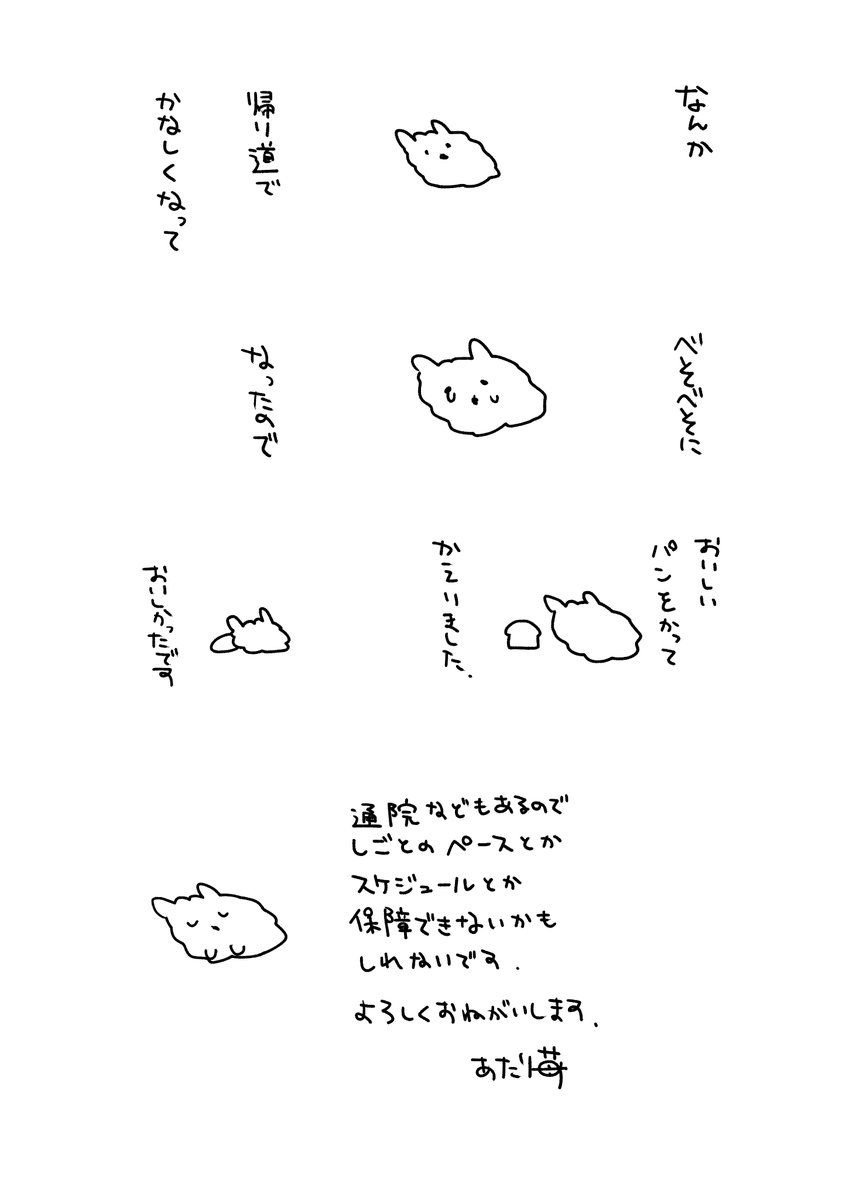 なんか
帰り道で
かなしくなって
べそべそに
なったので
おいしい
パンをかって
かえりました.
おいしかったです
通院などもあるので
しごとのペースとか
スケジュールとか
保障できないかも
しれないです.
よろしくおねがいします.